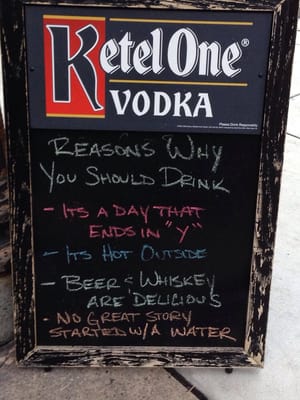 Ketel One®
VODKA
Please Drink Responsibly
REASONS WHY
YOU SHOULD DRINK
- ITS A DAY THAT
ENDS IN "Y"
- ITS HOT OUTSIDE
- BEER & WHISKEY
ARE DELICIOUS
- NO GREAT STORY
STARTED W/A WATER